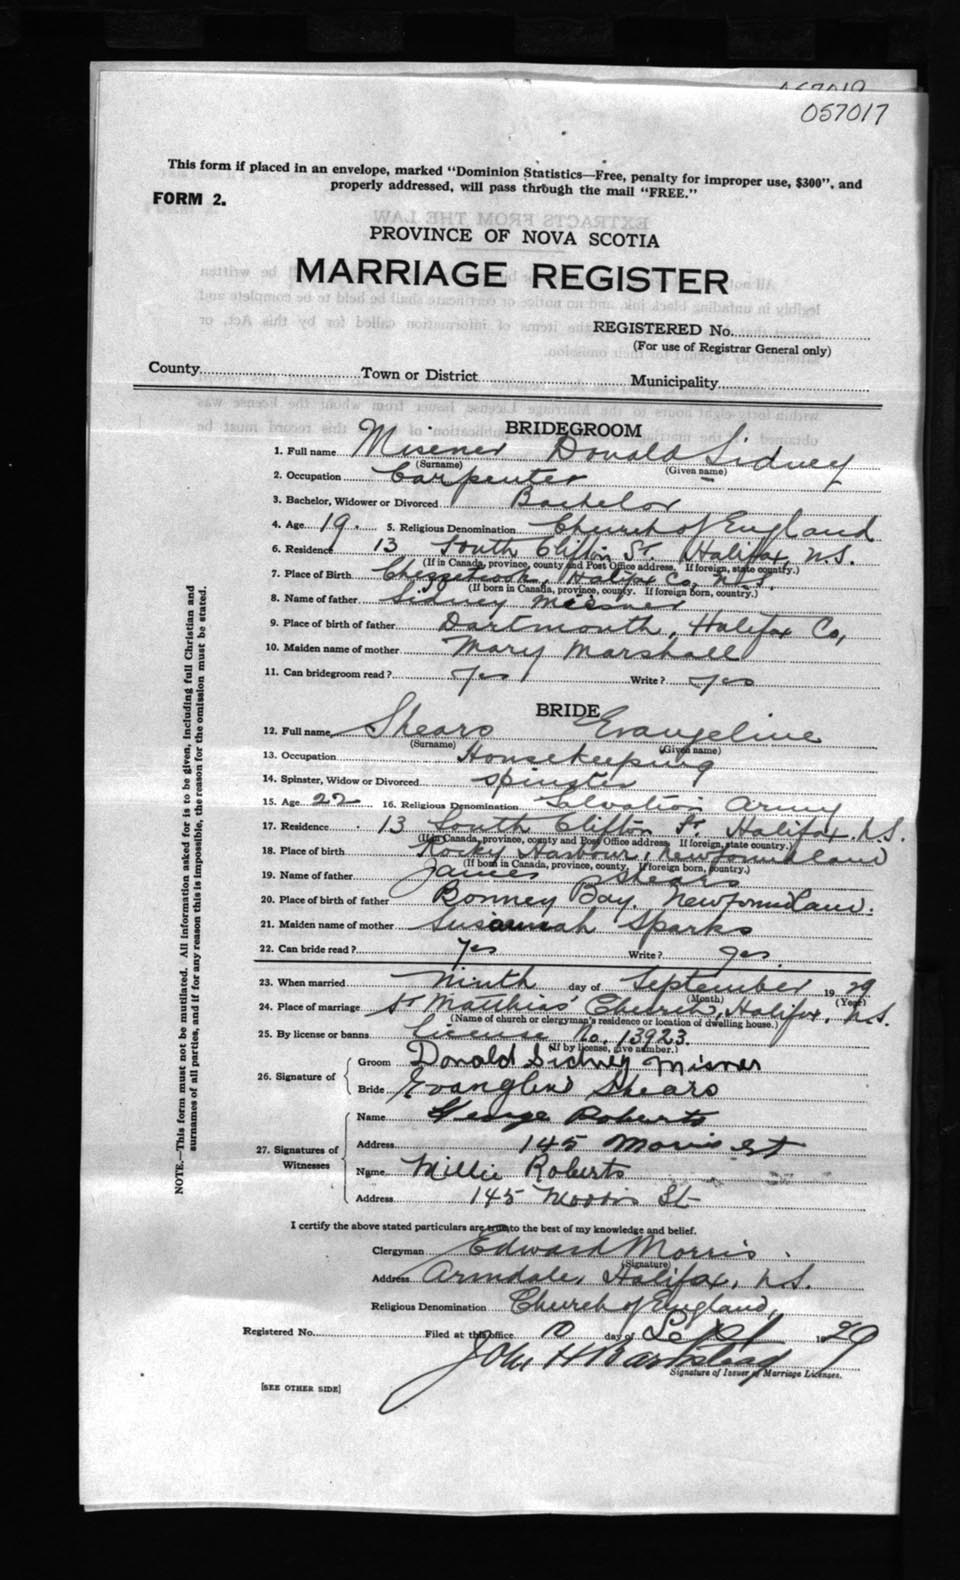 057017
This form if placed in an envelope, marked "Dominion Statistics—Free, penalty for improper use, $300", and
properly addressed, will pass through the mail "FREE."
FORM 2.
PROVINCE OF NOVA SCOTIA
MARRIAGE REGISTER
REGISTERED No.
(For use of Registrar General only)
County Town or District Municipality
BRIDEGROOM
1. Full name Misener Donald Sidney
(Surname) (Given name)
2. Occupation Carpenter
3. Bachelor, Widower or Divorced Bachelor
4. Age 19 5. Religious Denomination Church of England
6. Residence 13 South Clifton St. Halifax, N.S.
(If in Canada, province, county and Post Office address. If foreign, state country.)
7. Place of Birth Chezzetcook, Halifax Co, N.S.
(If born in Canada, province, county. If foreign born, country.)
8. Name of father Sidney Misener
9. Place of birth of father Dartmouth, Halifax Co,
10. Maiden name of mother Mary Marshall
11. Can bridegroom read? Yes Write? Yes
BRIDE
12. Full name Shears Evangeline
(Surname) (Given name)
13. Occupation Housekeeping
14. Spinster, Widow or Divorced Spinster
15. Age 22 16. Religious Denomination Salvation Army
17. Residence 13 South Clifton St. Halifax, N.S.
(If in Canada, province, county and Post Office address. If foreign, state country.)
18. Place of birth Rocky Harbour, Newfoundland
(If born in Canada, province, county. If foreign born, country.)
19. Name of father James Shears
20. Place of birth of father Bonney Bay, Newfoundland.
21. Maiden name of mother Susannah Sparks
22. Can bride read? Yes Write? yes
23. When married Ninth day of September 1929
(Month) (Year)
24. Place of marriage St Matthias' Church, Halifax, N.S.
(Name of church or clergyman's residence or location of dwelling house.)
25. By license or banns License No. 13923.
(If by license, give number.)
26. Signature of Groom Donald Sidney Misner
Bride Evangline Shears
27. Signatures of Witnesses Name George Roberts
Address 145 Morris St
Name Millie Roberts
Address 145 Morris St
I certify the above stated particulars are true to the best of my knowledge and belief.
Clergyman Edward Morris
(Signature)
Address Armdale, Halifax, N.S.
Religious Denomination Church of England,
Registered No. Filed at this office day of Sept 1929
John H Barnstead
Signature of Issuer of Marriage Licenses.
[SEE OTHER SIDE]
NOTE.—This form must not be mutilated. All information asked for is to be given, including full Christian and
surnames of all parties, and if for any reason this is impossible, the reason for the omission must be stated.